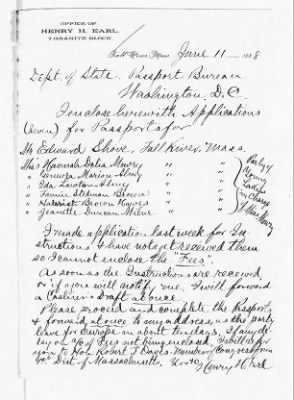 OFFICE OF
HENRY H. EARL
7 GRANITE BLOCK
Fall River, Mass June 11 1888
Dept. of State. Passport Bureau
Washington, D.C.
I enclose herewith Applications
(Seven) for Passports for
Mr Edward Shove, Fall River, Mass.
Miss Hannah Delia Mowry " "
" Marion Almy " "
" Ida Almy " "
" Fannie Stedman Brown " "
" Harriet Brown Hawes " "
" Jeanette Duncan Milne " "
Party of
Young
Ladies
in Charge
of Miss Mowry
I made application last week for In-
structions & have not yet received them
so I cannot enclose the "Fees".
As soon as the Instructions are received
or if you will notify me. I will forward
a Cashiers Draft at once.
Please proceed and complete the Passports
& forward at once to my address, as the party
leave for Europe in about ten days. If any de-
lay on of Fees not being enclosed, I shall refer
you to Hon Robert T Davis. Member of Congress from
Dist. of Massachusetts. Henry H Earl